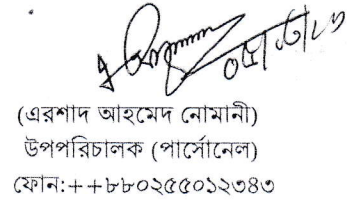 (এরশাদ আহমেদ নোমানী)
উপপরিচালক (পার্সোনেল)
ফোন:++৮৮০২৫৫০১২৩৪৩